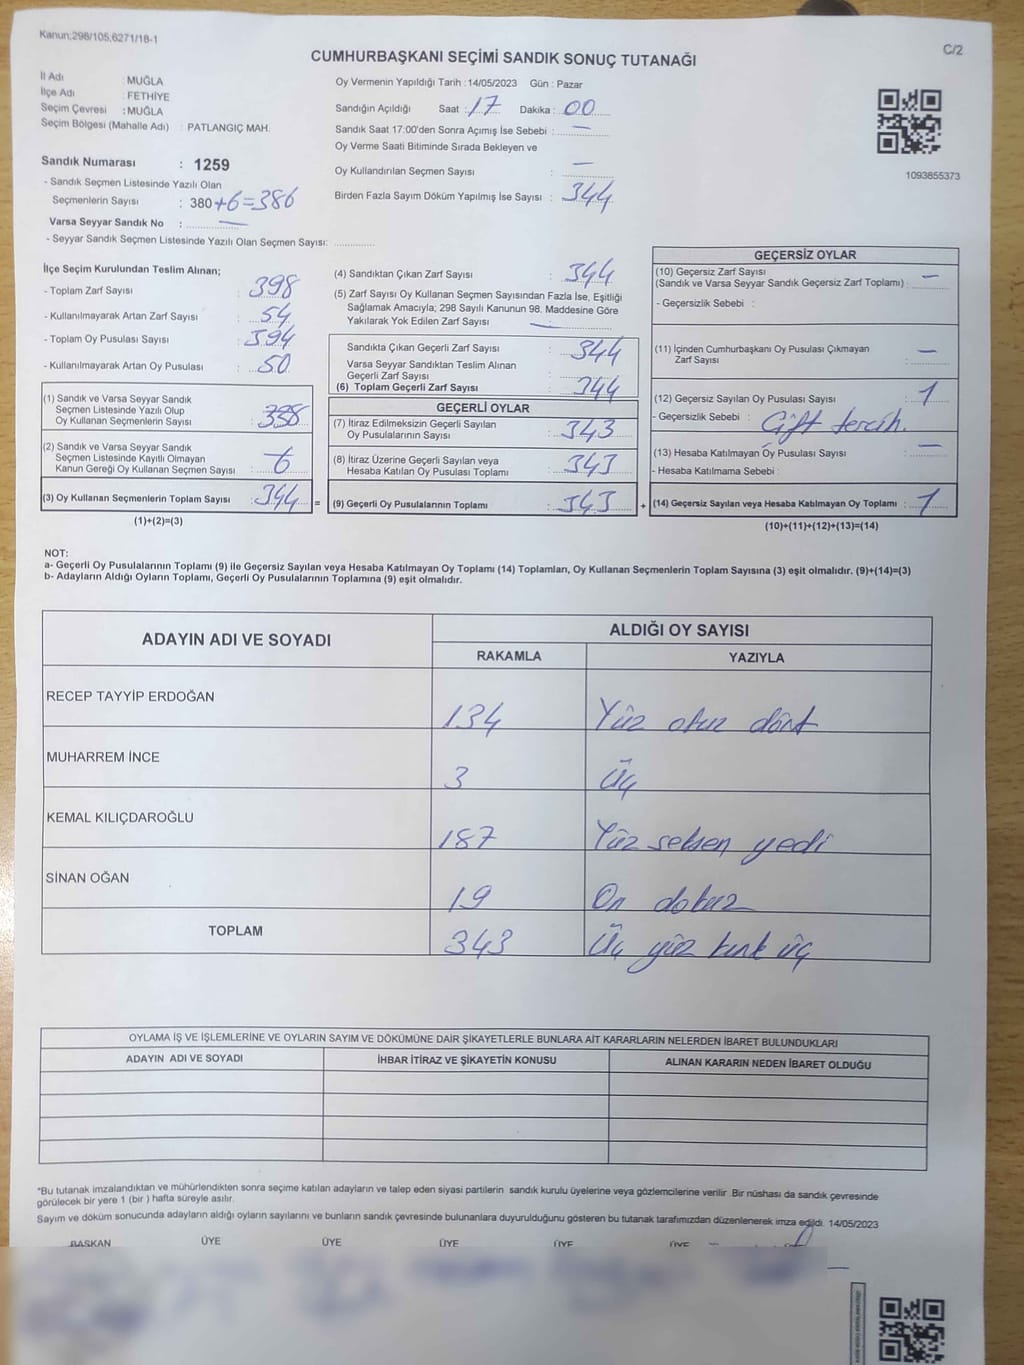 Kanun;298/105,6271/18-1
C/2
CUMHURBAŞKANI SEÇİMİ SANDIK SONUÇ TUTANAĞI
İl Adı : MUĞLA
İlçe Adı : FETHİYE
Seçim Çevresi : MUĞLA
Seçim Bölgesi (Mahalle Adı) : PATLANGIÇ MAH.
Sandık Numarası : 1259
- Sandık Seçmen Listesinde Yazılı Olan
Seçmenlerin Sayısı : 380 +6=386
Varsa Seyyar Sandık No : —
- Seyyar Sandık Seçmen Listesinde Yazılı Olan Seçmen Sayısı: ............
Oy Vermenin Yapıldığı Tarih :14/05/2023 Gün : Pazar
Sandığın Açıldığı Saat : 17 Dakika : 00
Sandık Saat 17:00'den Sonra Açımış İse Sebebi : —
Oy Verme Saati Bitiminde Sırada Bekleyen ve
Oy Kullandırılan Seçmen Sayısı : —
Birden Fazla Sayım Döküm Yapılmış İse Sayısı : 344
1093855373
İlçe Seçim Kurulundan Teslim Alınan;
- Toplam Zarf Sayısı : 398
- Kullanılmayarak Artan Zarf Sayısı : 54
- Toplam Oy Pusulası Sayısı : 394
- Kullanılmayarak Artan Oy Pusulası : 50
(1) Sandık ve Varsa Seyyar Sandık
Seçmen Listesinde Yazılı Olup
Oy Kullanan Seçmenlerin Sayısı : 338
(2) Sandık ve Varsa Seyyar Sandık
Seçmen Listesinde Kayıtlı Olmayan
Kanun Gereği Oy Kullanan Seçmen Sayısı : 6
(3) Oy Kullanan Seçmenlerin Toplam Sayısı : 344 =
(1)+(2)=(3)
(4) Sandıktan Çıkan Zarf Sayısı : 344
(5) Zarf Sayısı Oy Kullanan Seçmen Sayısından Fazla İse, Eşitliği
Sağlamak Amacıyla; 298 Sayılı Kanunun 98. Maddesine Göre
Yakılarak Yok Edilen Zarf Sayısı —
Sandıkta Çıkan Geçerli Zarf Sayısı : 344
Varsa Seyyar Sandıktan Teslim Alınan
Geçerli Zarf Sayısı :
(6) Toplam Geçerli Zarf Sayısı : 344
GEÇERLİ OYLAR
(7) İtiraz Edilmeksizin Geçerli Sayılan
Oy Pusulalarının Sayısı : 343
(8) İtiraz Üzerine Geçerli Sayılan veya
Hesaba Katılan Oy Pusulası Toplamı : 343
(9) Geçerli Oy Pusulalarının Toplamı : 343 +
GEÇERSİZ OYLAR
(10) Geçersiz Zarf Sayısı
(Sandık ve Varsa Seyyar Sandık Geçersiz Zarf Toplamı) : —
- Geçersizlik Sebebi :
(11) İçinden Cumhurbaşkanı Oy Pusulası Çıkmayan
Zarf Sayısı : —
(12) Geçersiz Sayılan Oy Pusulası Sayısı : 1
- Geçersizlik Sebebi : Çift tercih.
(13) Hesaba Katılmayan Oy Pusulası Sayısı : —
- Hesaba Katılmama Sebebi :
(14) Geçersiz Sayılan veya Hesaba Katılmayan Oy Toplamı : 1
(10)+(11)+(12)+(13)=(14)
NOT:
a- Geçerli Oy Pusulalarının Toplamı (9) ile Geçersiz Sayılan veya Hesaba Katılmayan Oy Toplamı (14) Toplamları, Oy Kullanan Seçmenlerin Toplam Sayısına (3) eşit olmalıdır. (9)+(14)=(3)
b- Adayların Aldığı Oyların Toplamı, Geçerli Oy Pusulalarının Toplamına (9) eşit olmalıdır.
ADAYIN ADI VE SOYADI
ALDIĞI OY SAYISI
RAKAMLA YAZIYLA
RECEP TAYYİP ERDOĞAN 134 Yüz otuz dört
MUHARREM İNCE 3 Üç
KEMAL KILIÇDAROĞLU 187 Yüz seksen yedi
SİNAN OĞAN 19 On dokuz
TOPLAM 343 Üç yüz kırk üç
OYLAMA İŞ VE İŞLEMLERİNE VE OYLARIN SAYIM VE DÖKÜMÜNE DAİR ŞİKAYETLERLE BUNLARA AİT KARARLARIN NELERDEN İBARET BULUNDUKLARI
ADAYIN ADI VE SOYADI İHBAR İTİRAZ VE ŞİKAYETİN KONUSU ALINAN KARARIN NEDEN İBARET OLDUĞU
*Bu tutanak imzalandıktan ve mühürlendikten sonra seçime katılan adayların ve talep eden siyasi partilerin sandık kurulu üyelerine veya gözlemcilerine verilir. Bir nüshası da sandık çevresinde
görülecek bir yere 1 (bir ) hafta süreyle asılır.
Sayım ve döküm sonucunda adayların aldığı oyların sayılarını ve bunların sandık çevresinde bulunanlara duyurulduğunu gösteren bu tutanak tarafımızdan düzenlenerek imza edildi. 14/05/2023
BAŞKAN ÜYE ÜYE ÜYE ÜYE ÜYE